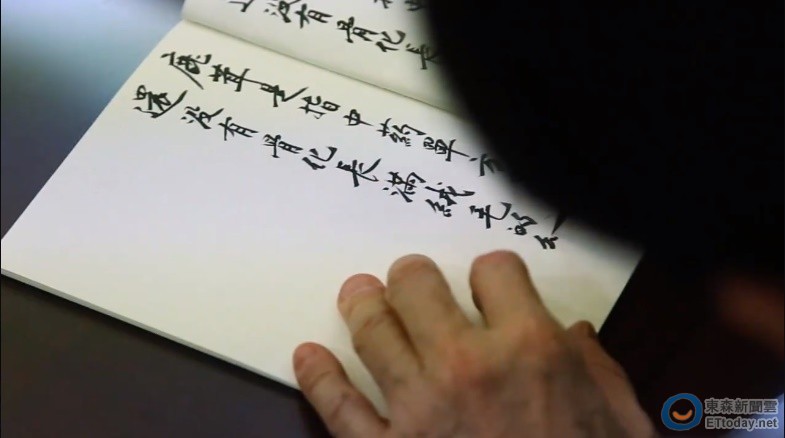 沒有骨化長
鹿茸是指中葯單
還沒有骨化長滿絨毛的
東森新聞雲
ETtoday.net